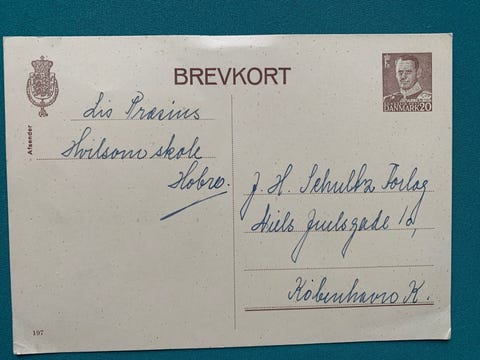 BREVKORT
DANMARK 20
Afsender
Lis Præsius
Hvilsom skole
Hobro.
J. H. Schultz Forlag
Niels Juelsgade
København K.
197